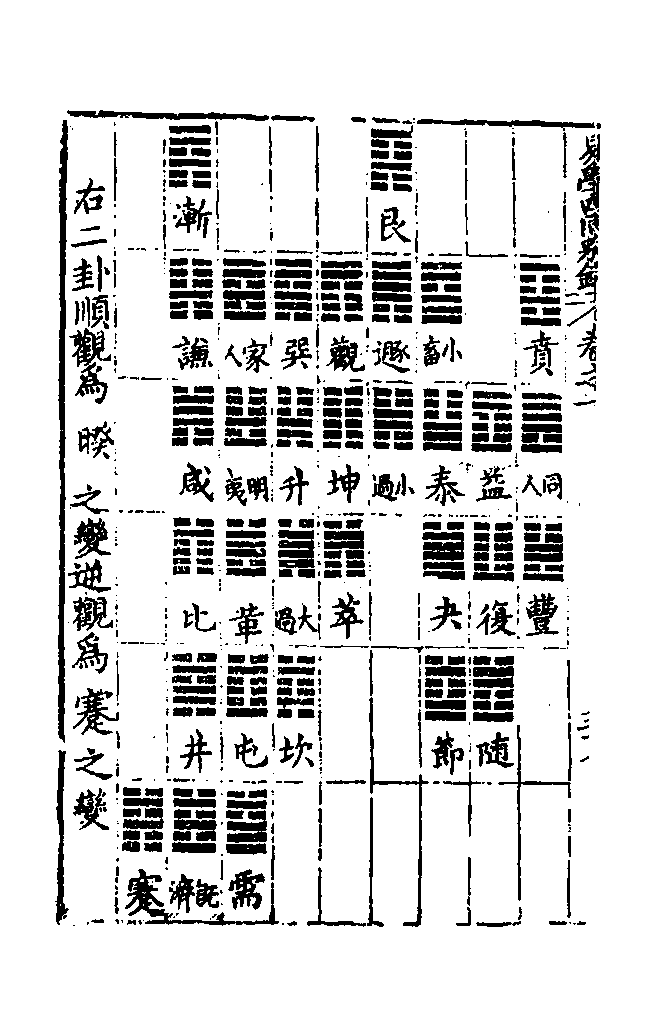 易學四同別錄 卷之一
賁 同人 豐
益 復 随
小畜 泰 夬 節
艮 遯 小過
觀 坤 萃
巽 升 大過 坎
家人 明夷 革 屯 需
漸 謙 咸 比 井 既濟
蹇
右二卦順觀爲 睽 之變逆觀爲蹇之變